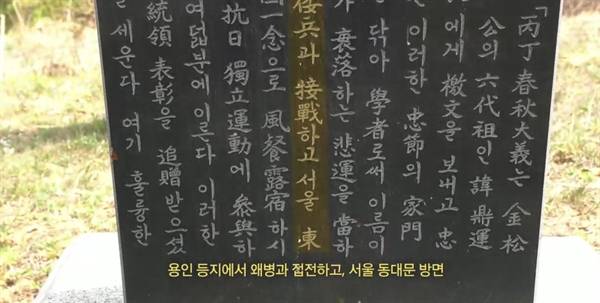 「丙丁春秋大義는 金松
公의 六代祖인 諱鼎運
에게 檄文을 보내고 忠
이러한 忠節의 家門
닦아 學者로써 이름이
衰落하는 悲運을 當하
倭兵과 接戰하고 서울 東
一念으로 風餐露宿하시
抗日 獨立運動에 參與하
여덟분에 이른다 이러한
統領 表彰을 追贈받으셨
세운다 여기 훌륭한
용인 등지에서 왜병과 접전하고, 서울 동대문 방면